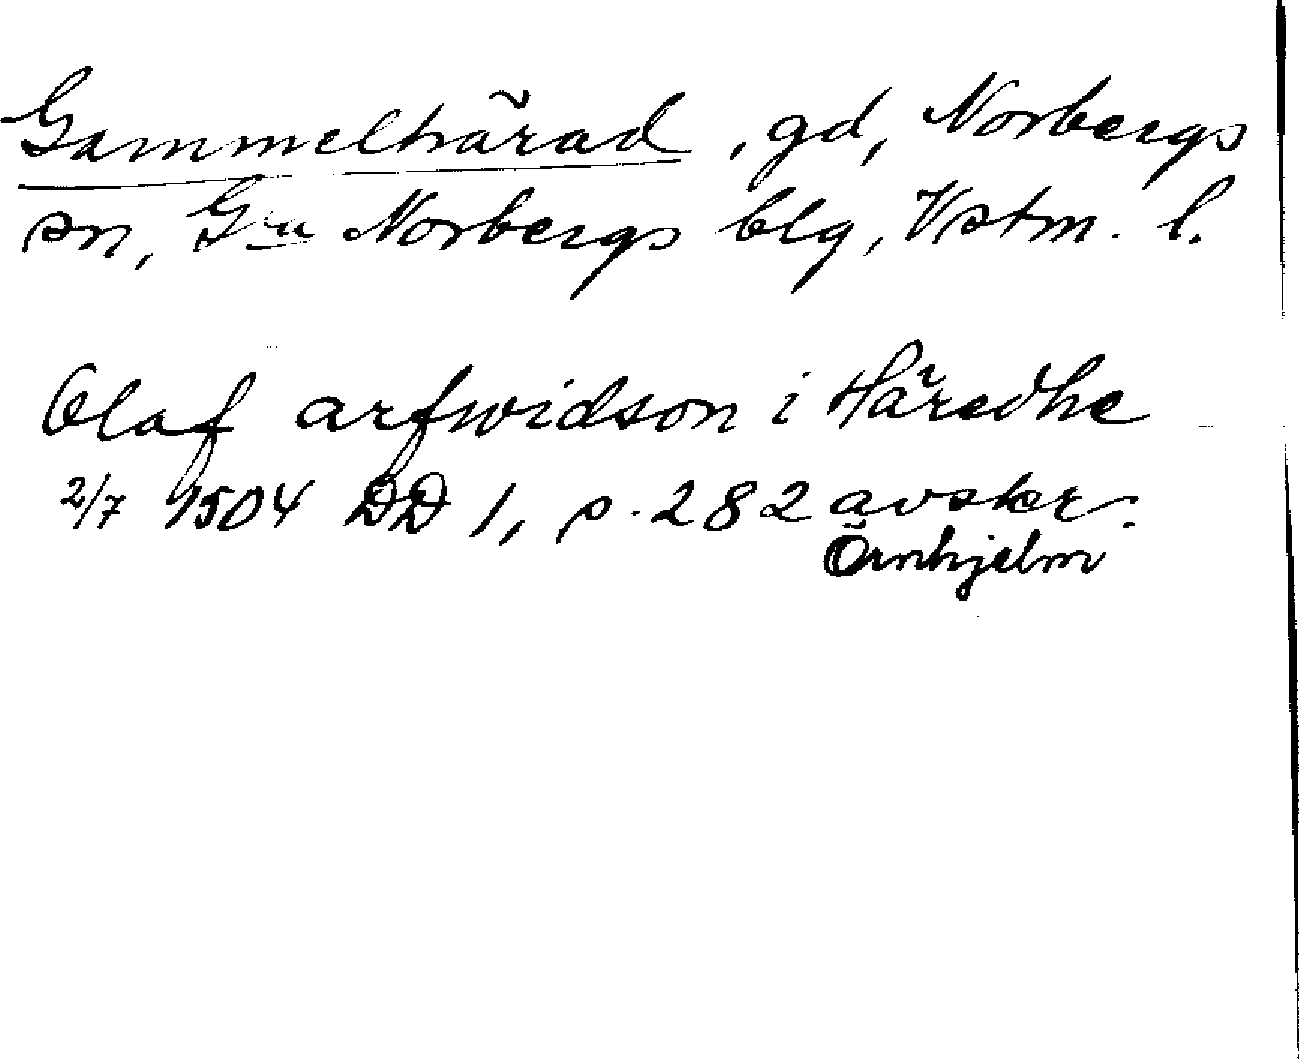 Gammelhärad, gd, Norbergs
sn, Gla Norbergs blg, Vstm. l.
Olaf arfwidson i Häredhe
2/7 1504 DD 1, s. 282 avskr.
Örnhjelm